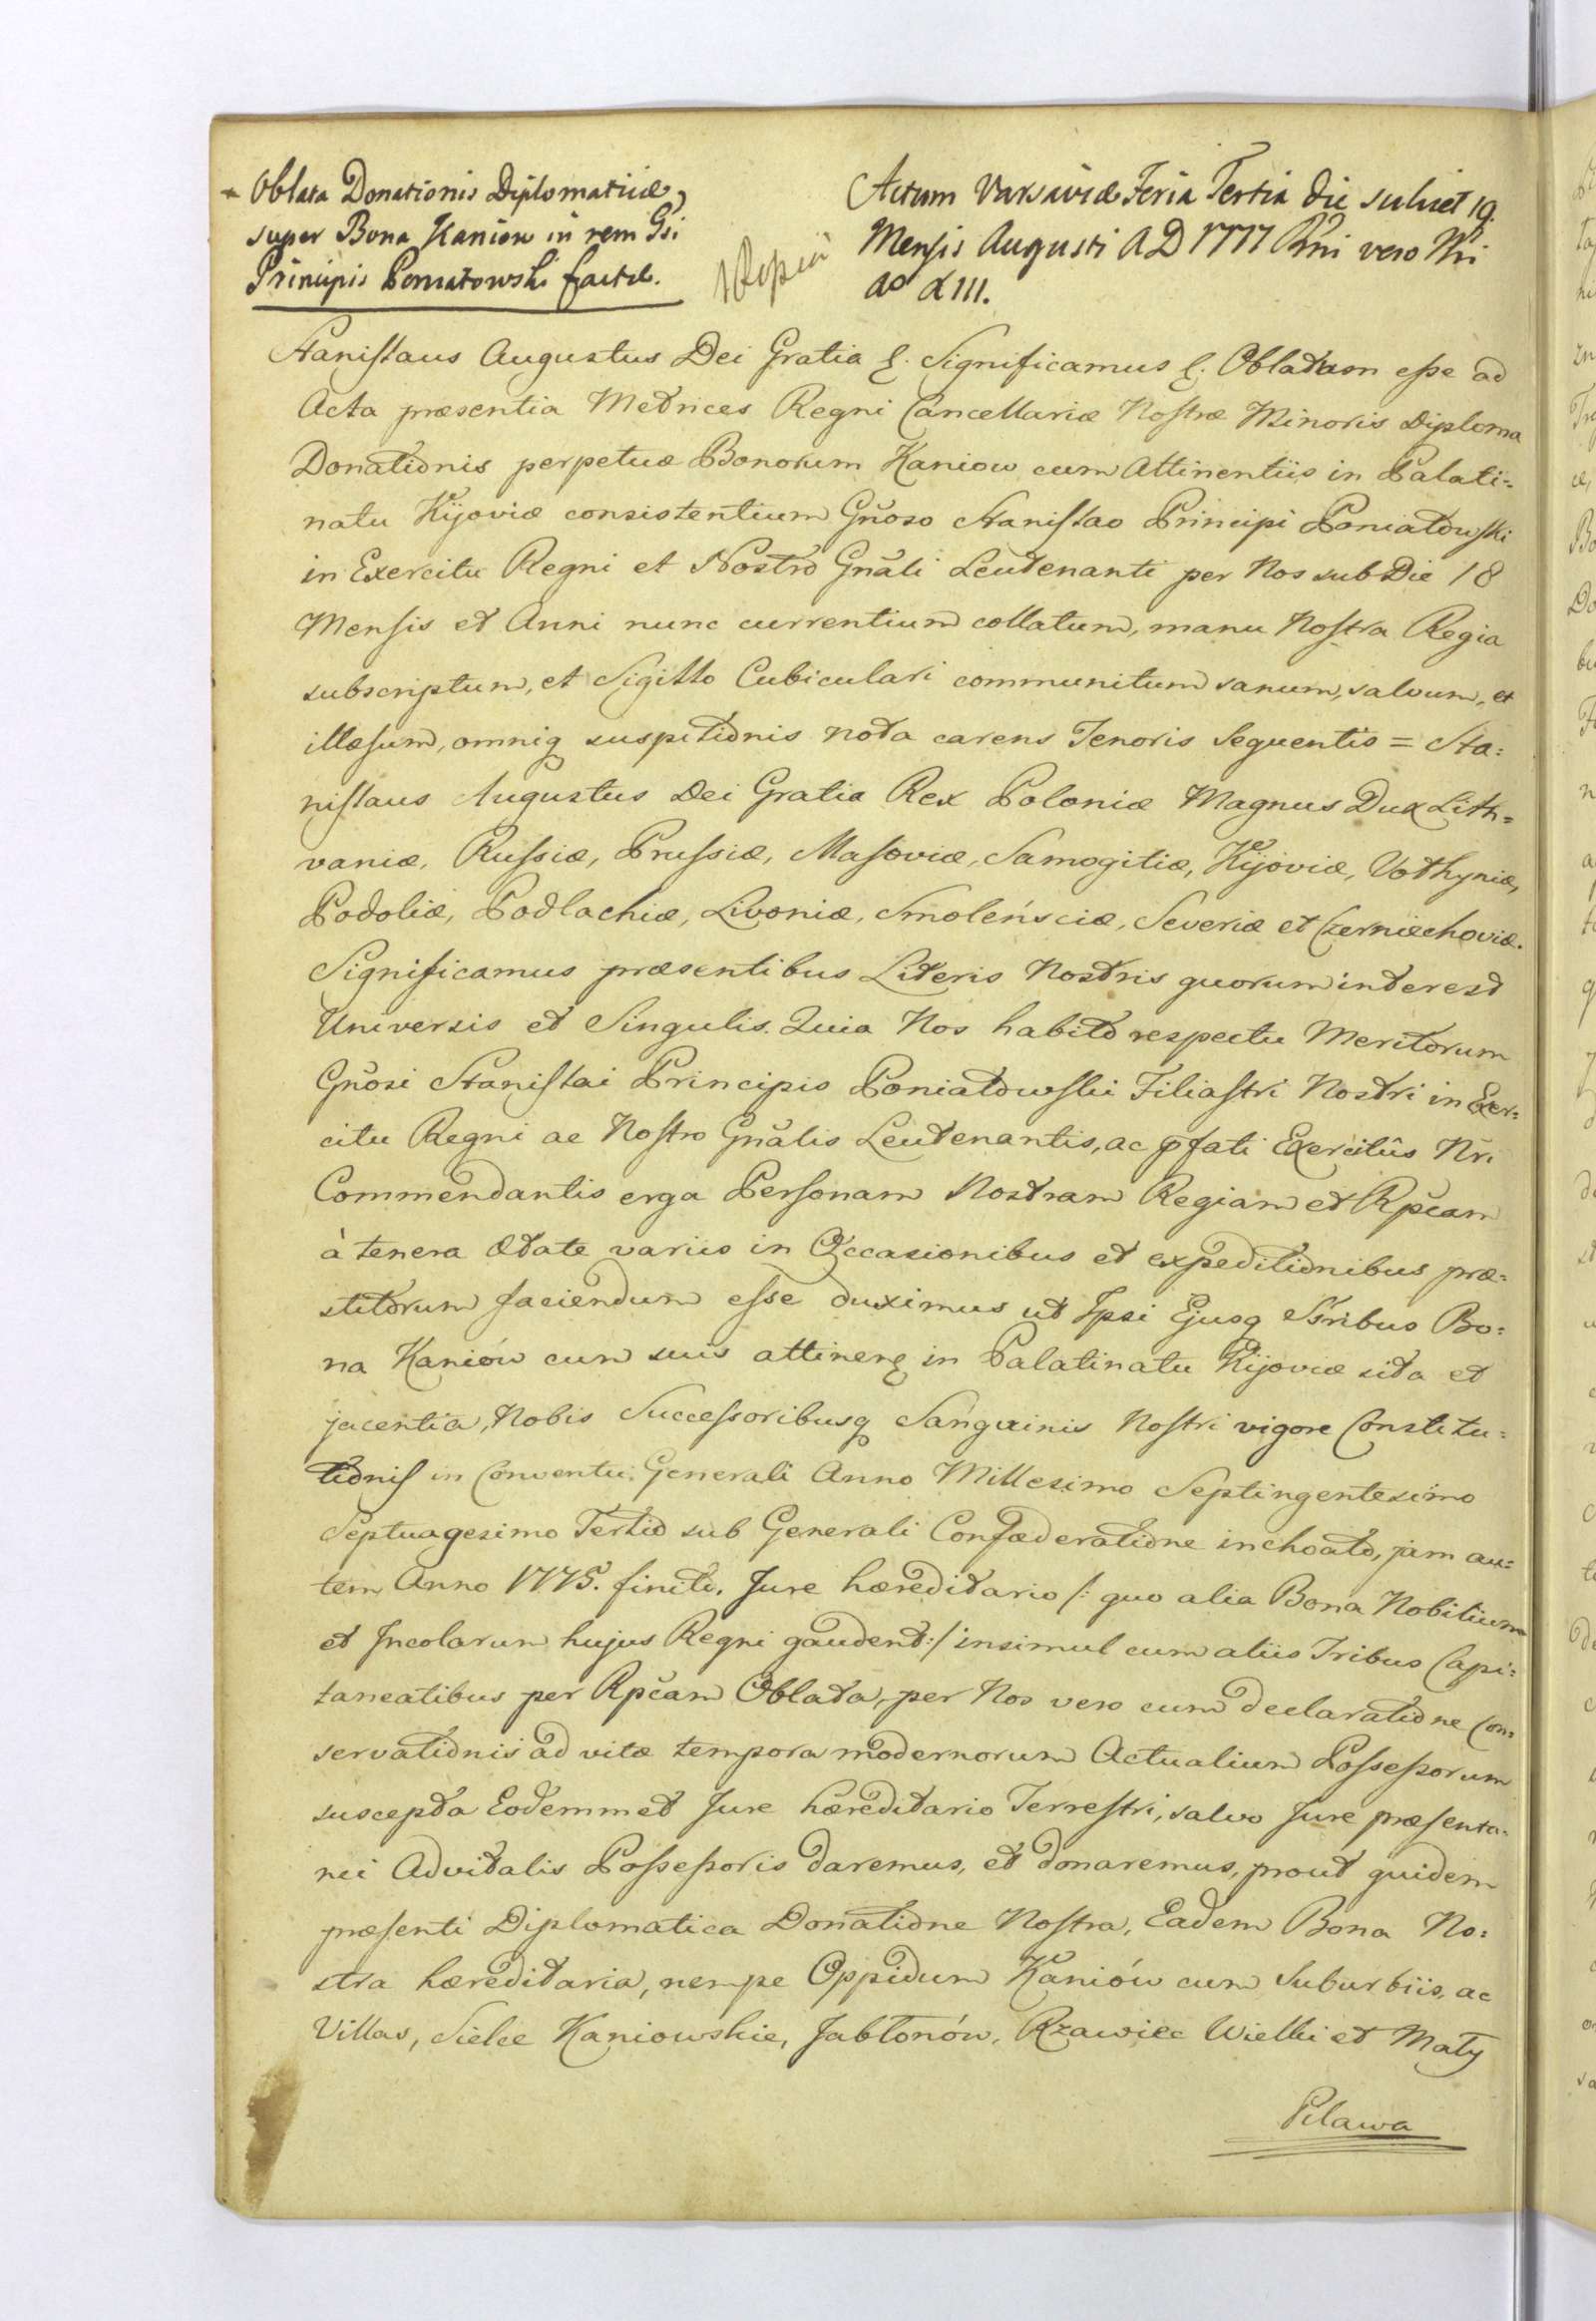 Oblata Donationis Diplomaticæ
super Bona Kaniow in rem Gsi
Principis Poniatowski factæ.
Actum Varsaviæ Feria Tertia Die scilicet 19.
Mensis Augusti AD 1777 Rni vero Nri
ao XIII.
Stanislaus Augustus Dei Gratia &. Significamus &. Oblatum esse ad
Acta præsentia Metrices Regni Cancellariæ Nostræ Minoris Diploma
Donationis perpetuæ Bonorum Kaniow cum Attinentiis in Palati=
natu Kijoviæ consistentium Gnoso Stanislao Principi Poniatowski
in Exercitu Regni et Nostro Gnali Leutenanti per Nos sub Die 18
Mensis et Anni nunc currentium collatum, manu Nostra Regia
subscriptum, et Sigillo Cubiculari communitum sanum, salvum, et
illæsum, omniq suspitionis nota carens Tenoris Sequentis = Sta=
nislaus Augustus Dei Gratia Rex Poloniæ Magnus Dux Lith=
vaniæ, Russiæ, Prussiæ, Masoviæ, Samogitiæ, Kijoviæ, Volhyniæ,
Podoliæ, Podlachiæ, Livoniæ, Smolensciæ, Severiæ et Czerniechoviæ.
Significamus præsentibus Literis Nostris quorum interest
Universis et Singulis. Quia Nos habito respectu Meritorum
Gnosi Stanislai Principis Poniatowski Filiastri Nostri in Exer=
citu Regni ac Nostro Gnalis Leutenantis, ac pfati Exercitûs Nri
Commendantis erga Personam Nostram Regiam et Rpcam
à tenera Ætate variis in Occasionibus et expeditionibus præ=
stitorum faciendum esse duximus ut Ipsi Ejusq Ssribus Bo=
na Kaniów cum suis attinen in Palatinatu Kijoviæ sita et
jacentia, Nobis Successoribusq Sanguinis Nostri vigore Constitu=
tionis in Conventu Generali Anno Millesimo Septingentesimo
Septuagesimo Tertio sub Generali Confæderatione inchoato, jam au=
tem Anno 1775. finiti, Jure hæreditario /: quo alia Bona Nobilium
et Incolarum hujus Regni gaudent :/ insimul cum aliis Tribus Capi=
taneatibus per Rpcam Oblata, per Nos vero cum declaratione Con=
servationis ad vitæ tempora modernorum Actualium Possessorum
suscepta Eodemmet Jure hæreditario Terrestri, salvo Jure præsenta=
nei Advitalis Possessoris daremus, et donaremus, prout quidem
præsenti Diplomatica Donatione Nostra, Eadem Bona No=
stra hæreditaria, nempe Oppidum Kaniów cum Suburbiis, ac
Villas, Sielce Kaniowskie, Jabłonów, Rzawiec Wielki et Mały
Pilawa